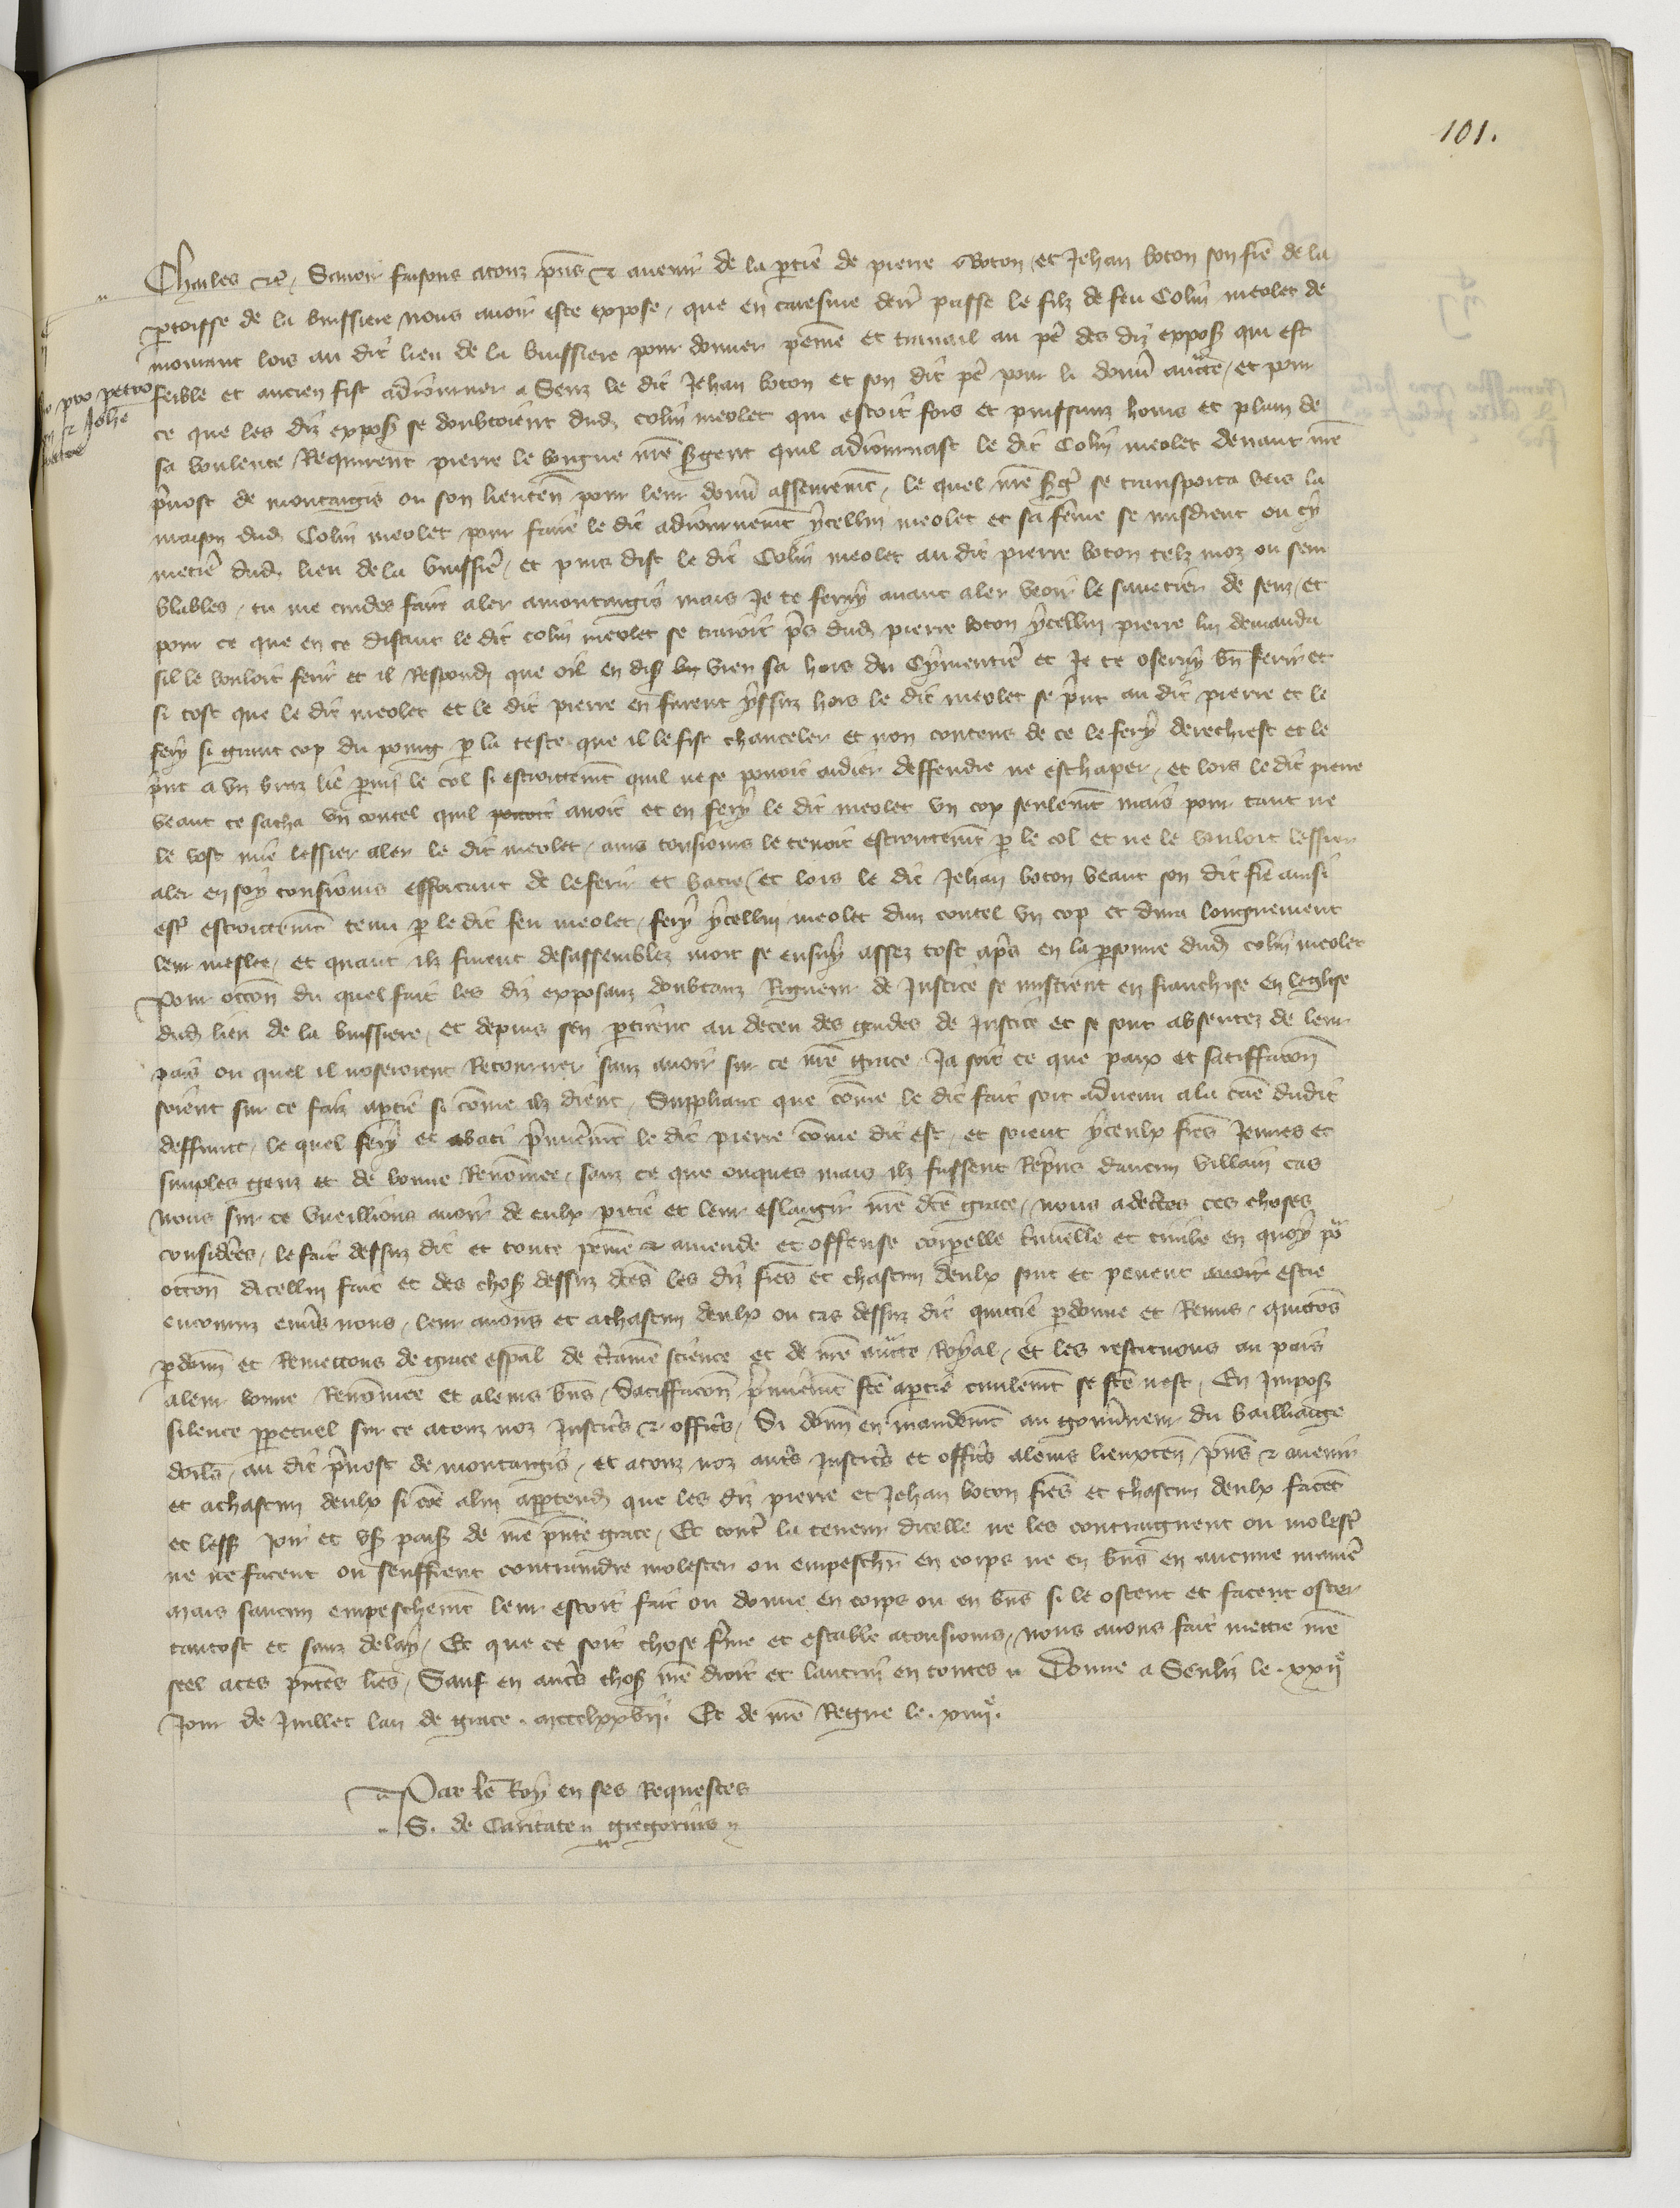 101.
Charles etc, Savoir faisons a touz pñs et avenir de la ptie de pierre Boton et Jehan boton son fre de la
proisse de la bussiere nous avoir este expose, que en caresme derr passe le filz de feu Colin meolet de
mourant lors au dit lieu de la bussiere pour donner peine et travail au pe des diz expos qui est
feible et ancien fist adiourner a Senz le dit Jehan boton et son dit pe pour li donn aucte, et pour
ce que les diz expos se doubtoient dud colin meolet qui estoit fors et puissanz homs et plain de
sa voulente Requirent pierre le borgne nre sgent quil adiournast le dit Colin meolet devant nre
pvost de montargis ou son lieuten pour leur donn assseuremt, le quel nre sgt se transporta vers la
maison dud Colin meolet pour faire le dit adiournemt ycellui meolet et sa feme se misdrent ou cy
metiere dud lieu de la bussiere, et puis dist le dit Colin meolet au dit pierre boton telz moz ou sem
blables, tu me cuides faire aler a montargis mais Je te feray avant aler veoir le savetier de senz, et
pour ce que en ce disant le dit colin meolet se tiroit pres dud pierre boton ycellui pierre lui demanda
sil le vouloit ferir et il Respond que oil en dis vien sa hors du Cymentiere et Je te oseray bn ferir et
si tost que le dit meolet et le dit pierre en furent yssuz hors le dit meolet se print au dit pierre et le
fery si grant cop du poing p la teste que il le fist chanceler et non contens de ce le fery derechief et le
print a un braz lie pmi le col si estroittemt quil ne se povoit aidier deffendre ne eschaper, et lors le dit pierre
veant ce sacha un coutel quil avoit et en fery le dit meolet un cop seulemt mais pour tant ne
le vost mie lessier aler le dit meolet, ains tousiours le tenoit estroittemt p le col et ne le vouloit lessier
aler en soy tousiours efforcant de le ferir et batre, et lors le dit Jehan boton veant son dit fre ainsi
est estroittemt tenu p le dit feu meolet, fery ycellui meolet dun coutel un cop et dura longuement
leur meslee, et quant ilz furent desassemblez mort se ensuy assez tost apres en la psonne dud colin meolet
Pour occon du quel fait les diz exposanz doubtanz Rigueur de Justice se mistrent en franchise en leglise
dud lieu de la bussiere, et depuis sen ptirent au deceu des gardes de justice et se sont absentez de leur
pais ou quel il noseroient Retourner sanz avoir sur ce nre grace, Ja soit ce que paix et satiffacon
soient sur ce faiz a ptie si come ilz dient, Suppliant que come le dit fait soit advenu a la cause dudit
deffunct, le quel fery et bati pmieremt le dit pierre come dit est, et soient yceulx fres Jeunes et
simples genz et de bonne Renommee, sanz ce que onques mais ilz fussent Reprins daucun villain cas
nous sur ce vueillions avoir de eulx pitie et leur eslargir nre dce grace, Nous adecertes ces choses
considerees, le fait dessuz dit et toute peine et amende et offense corporelle criminelle et civile en quoy por
occon dicellui fait et des chos dessuz dces les diz fres et chascun deulx sont et pevent estre
encouruz envers nous, leur avons et a chascun deulx ou cas dessuz dit quittie pdonne et Remis, quittos
pdonn et Remettons de grace espal de ctaine science et de nre aucte Royal, et les restituons au pais
a leur bonne Renommee et a leurs bns, Satiffacon pmieremt fte a ptie civilemt se fte nest, En Impos
silence ppetuel sur ce a touz noz justicrs et officrs, Si donn en mandemt au gouverneur du bailliage
dorls, au dit pvost de montargis, et a touz noz autrs justicrs et officrs a leurs lieuxten pns et avenir
et a chascun deulx si come a lui apptend que les diz pierre et Jehan boton fres et chascun deulx facet
et less Joir et us paisi de nre pnte grace, Et contre la teneur dicelle ne les contraignent ou molestr
ne ne facent ou seuffrent contraindre molester ou empeschr en corps ne en bns en aucune maniere
Mais saucun empeschemt leur estoit fait ou donne en corps ou en bns si le ostent et facent oster
tantost et sanz delay, Et que ce soit chose ferme et estable a tousiours, nous avons fait mettre nre
seel a ces pntes lres, Sauf en autrs chos nre droit et lautrui en toutes Donne a Senliz le xxii
Jour de Juillet lan de grace mccclxxvii Et de nre Regne le xiiii.
Par le Roy en ses Requestes
S. de Caritate gregorius
pro petro
et Johe